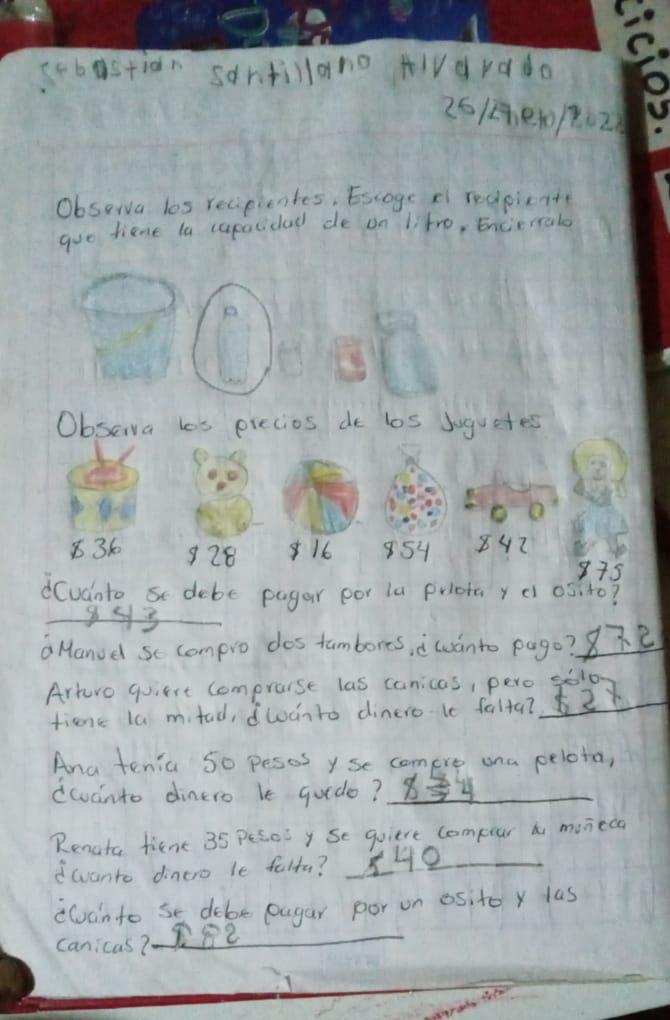 Sebastian Santillano Alvarado
26/Enero/2022
icios.
Observa los recipientes. Escoge el recipiente
que tiene la capacidad de un litro. Encierralo
Observa los precios de los Juguetes
$36 $28 $16 $54 $42 $75
¿Cuánto se debe pagar por la pelota y el osito?
$43
¿Manuel se compro dos tambores, ¿cuánto pago? $72
Arturo quiere comprarse las canicas, pero sólo
tiene la mitad, ¿cuánto dinero le falta? $27
Ana tenía 50 pesos y se compro una pelota,
¿cuánto dinero le quedo?
Renata tiene 35 Pesos y se quiere comprar la muñeca
¿cuanto dinero le falta? $40
¿cuánto se debe pagar por un osito y las
canicas? $82